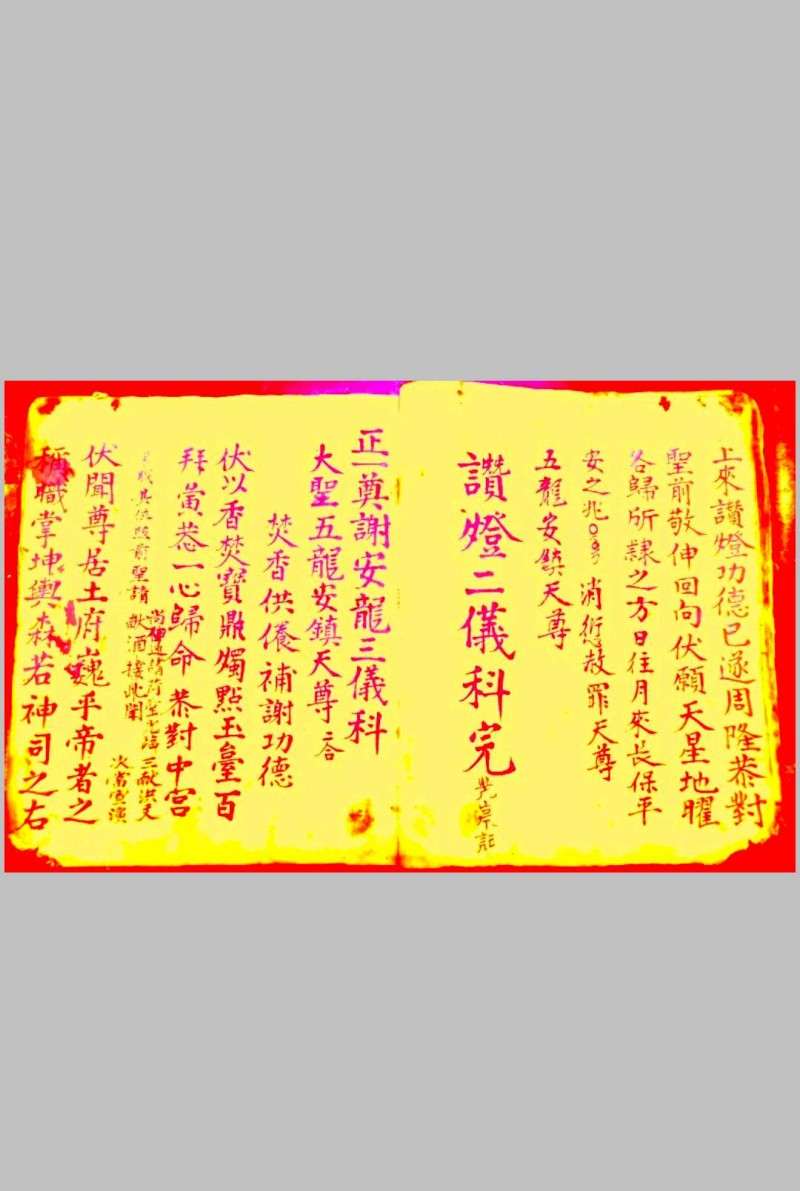 上來讃燈功德已遂周隆恭對
聖前敬伸回向伏願天星地曜
各歸所隸之方日往月來長保平
安之兆 消愆赦罪天尊
五龍安鎮天尊
讃燈二儀科完
正一奠謝安龍三儀科
大聖五龍安鎮天尊
焚香供養補謝功德
伏以香焚寶鼎燭點玉臺百
拜黃恭一心歸命恭對中宮
照前聖請 獻酒接此闋
三獻洪文
次當宣演
伏聞尊居土府巍乎帝者之
稱職掌坤輿森若神司之右